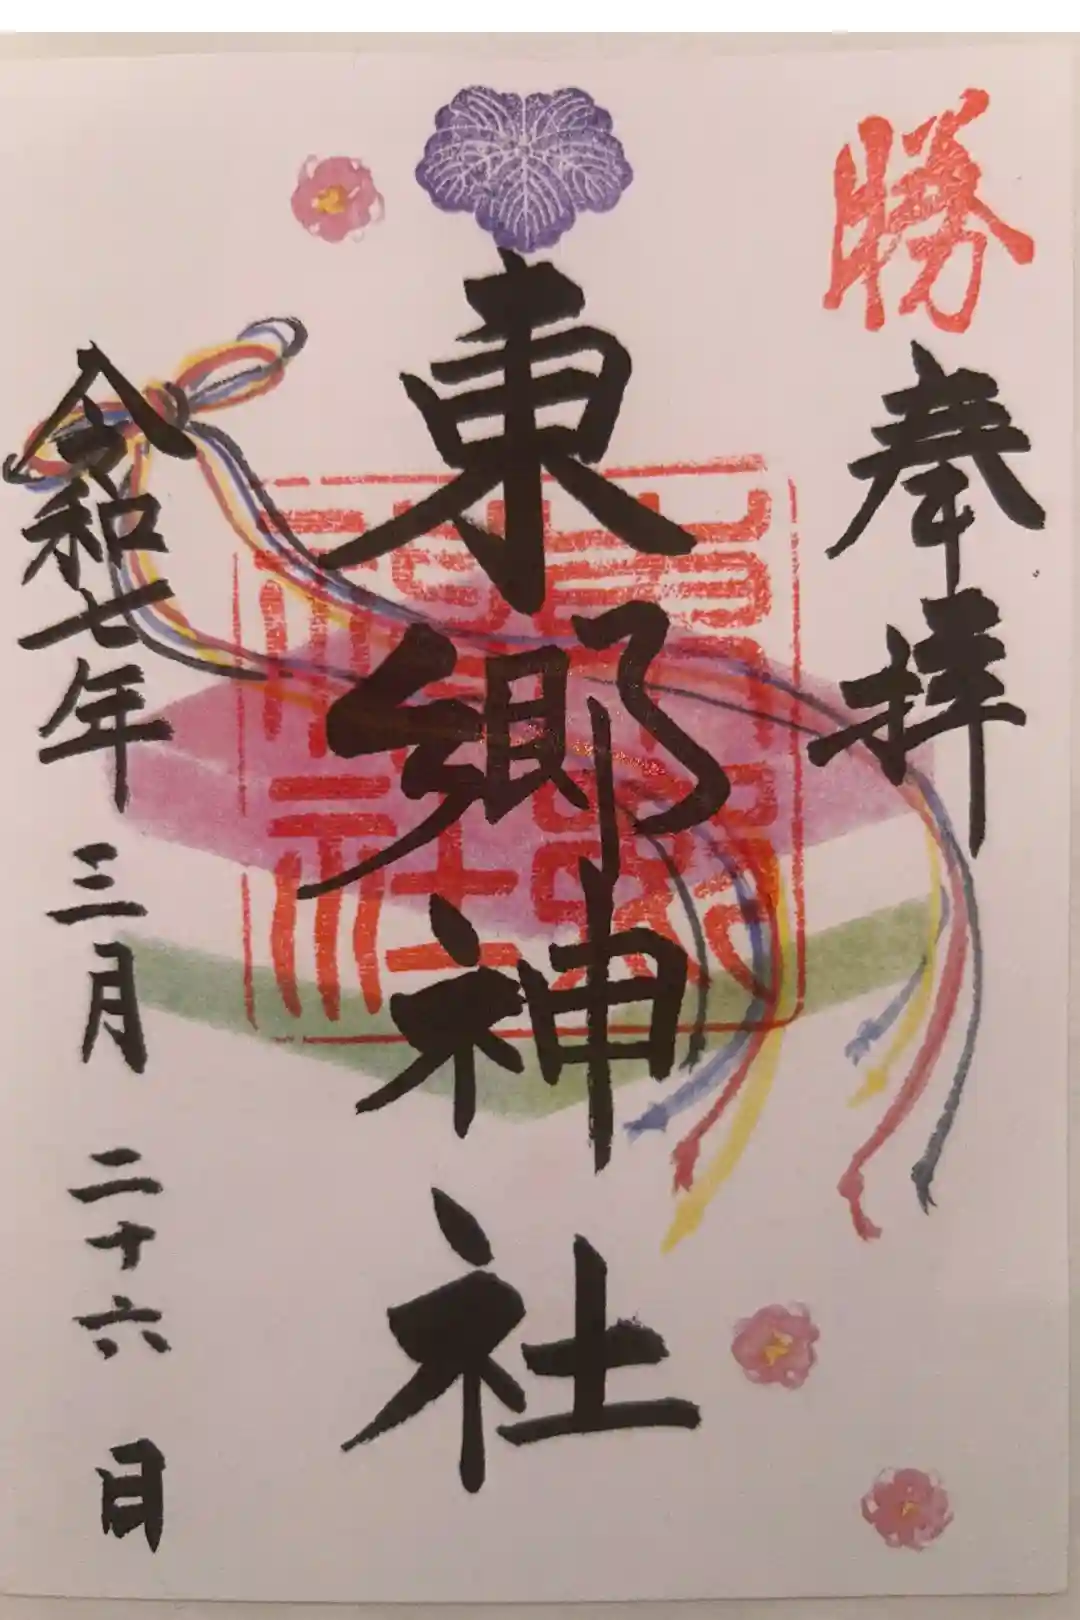 勝
奉拝
東郷神社
令和七年三月二十六日